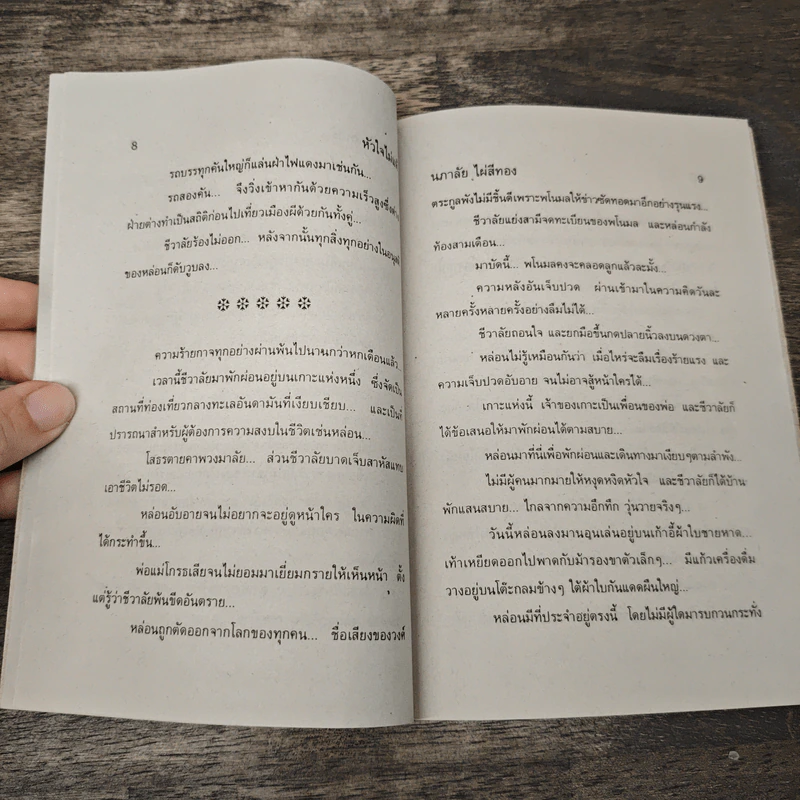 8
หัวใจไม่
รถบรรทุกคันใหญ่ก็แล่นฝ่าไฟแดงมาเช่นกัน...
รถสองคัน... จึงวิ่งเข้าหากันด้วยความเร็วสูงซึ่ง
ฝ่ายต่างทำเป็นสถิติก่อนไปเที่ยวเมืองผีด้วยกันทั้งคู่...
ชีวาลัยร้องไม่ออก... หลังจากนั้นทุกสิ่งทุกอย่างใน
ของหล่อนก็ดับวูบลง...
ความร้ายกาจทุกอย่างผ่านพ้นไปนานกว่าหกเดือนแล้ว...
เวลานี้ชีวาลัยมาพักผ่อนอยู่บนเกาะแห่งหนึ่ง ซึ่งจัดเป็น
สถานที่ท่องเที่ยวกลางทะเลอันดามันที่เงียบเชียบ... และเป็นที่
ปรารถนาสำหรับผู้ต้องการความสงบในชีวิตเช่นหล่อน...
โสธรตายคาพวงมาลัย... ส่วนชีวาลัยบาดเจ็บสาหัสแทบ
เอาชีวิตไม่รอด...
หล่อนอับอายจนไม่อยากจะอยู่ดูหน้าใคร ในความผิดที่
ได้กระทำขึ้น...
พ่อแม่โกรธเสียจนไม่ยอมมาเยี่ยมกรายให้เห็นหน้า ตั้ง
แต่รู้ว่าชีวาลัยพ้นขีดอันตราย...
หล่อนถูกตัดออกจากโลกของทุกคน... ชื่อเสียงของวงศ์
นภาลัย ไผ่สีทอง
9
ตระกูลพังไม่มีชิ้นดีเพราะพโนมลให้ข่าวซัดทอดมาอีกอย่างรุนแรง...
ชีวาลัยแย่งสามีจดทะเบียนของพโนมล และหล่อนกำลัง
ท้องสามเดือน...
มาบัดนี้... พโนมลคงจะคลอดลูกแล้วละมั้ง...
ความหลังอันเจ็บปวด ผ่านเข้ามาในความคิดวันละ
หลายครั้งหลายครั้งอย่างลืมไม่ได้...
ชีวาลัยถอนใจ และยกมือขึ้นกดปลายนิ้วลงบนดวงตา...
หล่อนไม่รู้เหมือนกันว่า เมื่อไหร่จะลืมเรื่องร้ายแรง และ
ความเจ็บปวดอับอาย จนไม่อาจสู้หน้าใครได้...
เกาะแห่งนี้ เจ้าของเกาะเป็นเพื่อนของพ่อ และชีวาลัยก็
ได้ข้อเสนอให้มาพักผ่อนได้ตามสบาย...
หล่อนมาที่นี่เพื่อพักผ่อนและเดินทางมาเงียบๆตามลำพัง...
ไม่มีผู้คนมากมายให้หงุดหงิดหัวใจ และชีวาลัยก็ได้บ้าน
พักแสนสบาย... ไกลจากความอึกทึก วุ่นวายจริงๆ...
วันนี้หล่อนลงมานอนเล่นอยู่บนเก้าอี้ผ้าใบชายหาด...
เท้าเหยียดออกไปพาดกับม้ารองขาตัวเล็กๆ... มีแก้วเครื่องดื่ม
วางอยู่บนโต๊ะกลมข้างๆ ใต้ผ้าใบกันแดดผืนใหญ่...
หล่อนมีที่ประจำอยู่ตรงนี้ โดยไม่มีผู้ใดมารบกวนกระทั่ง